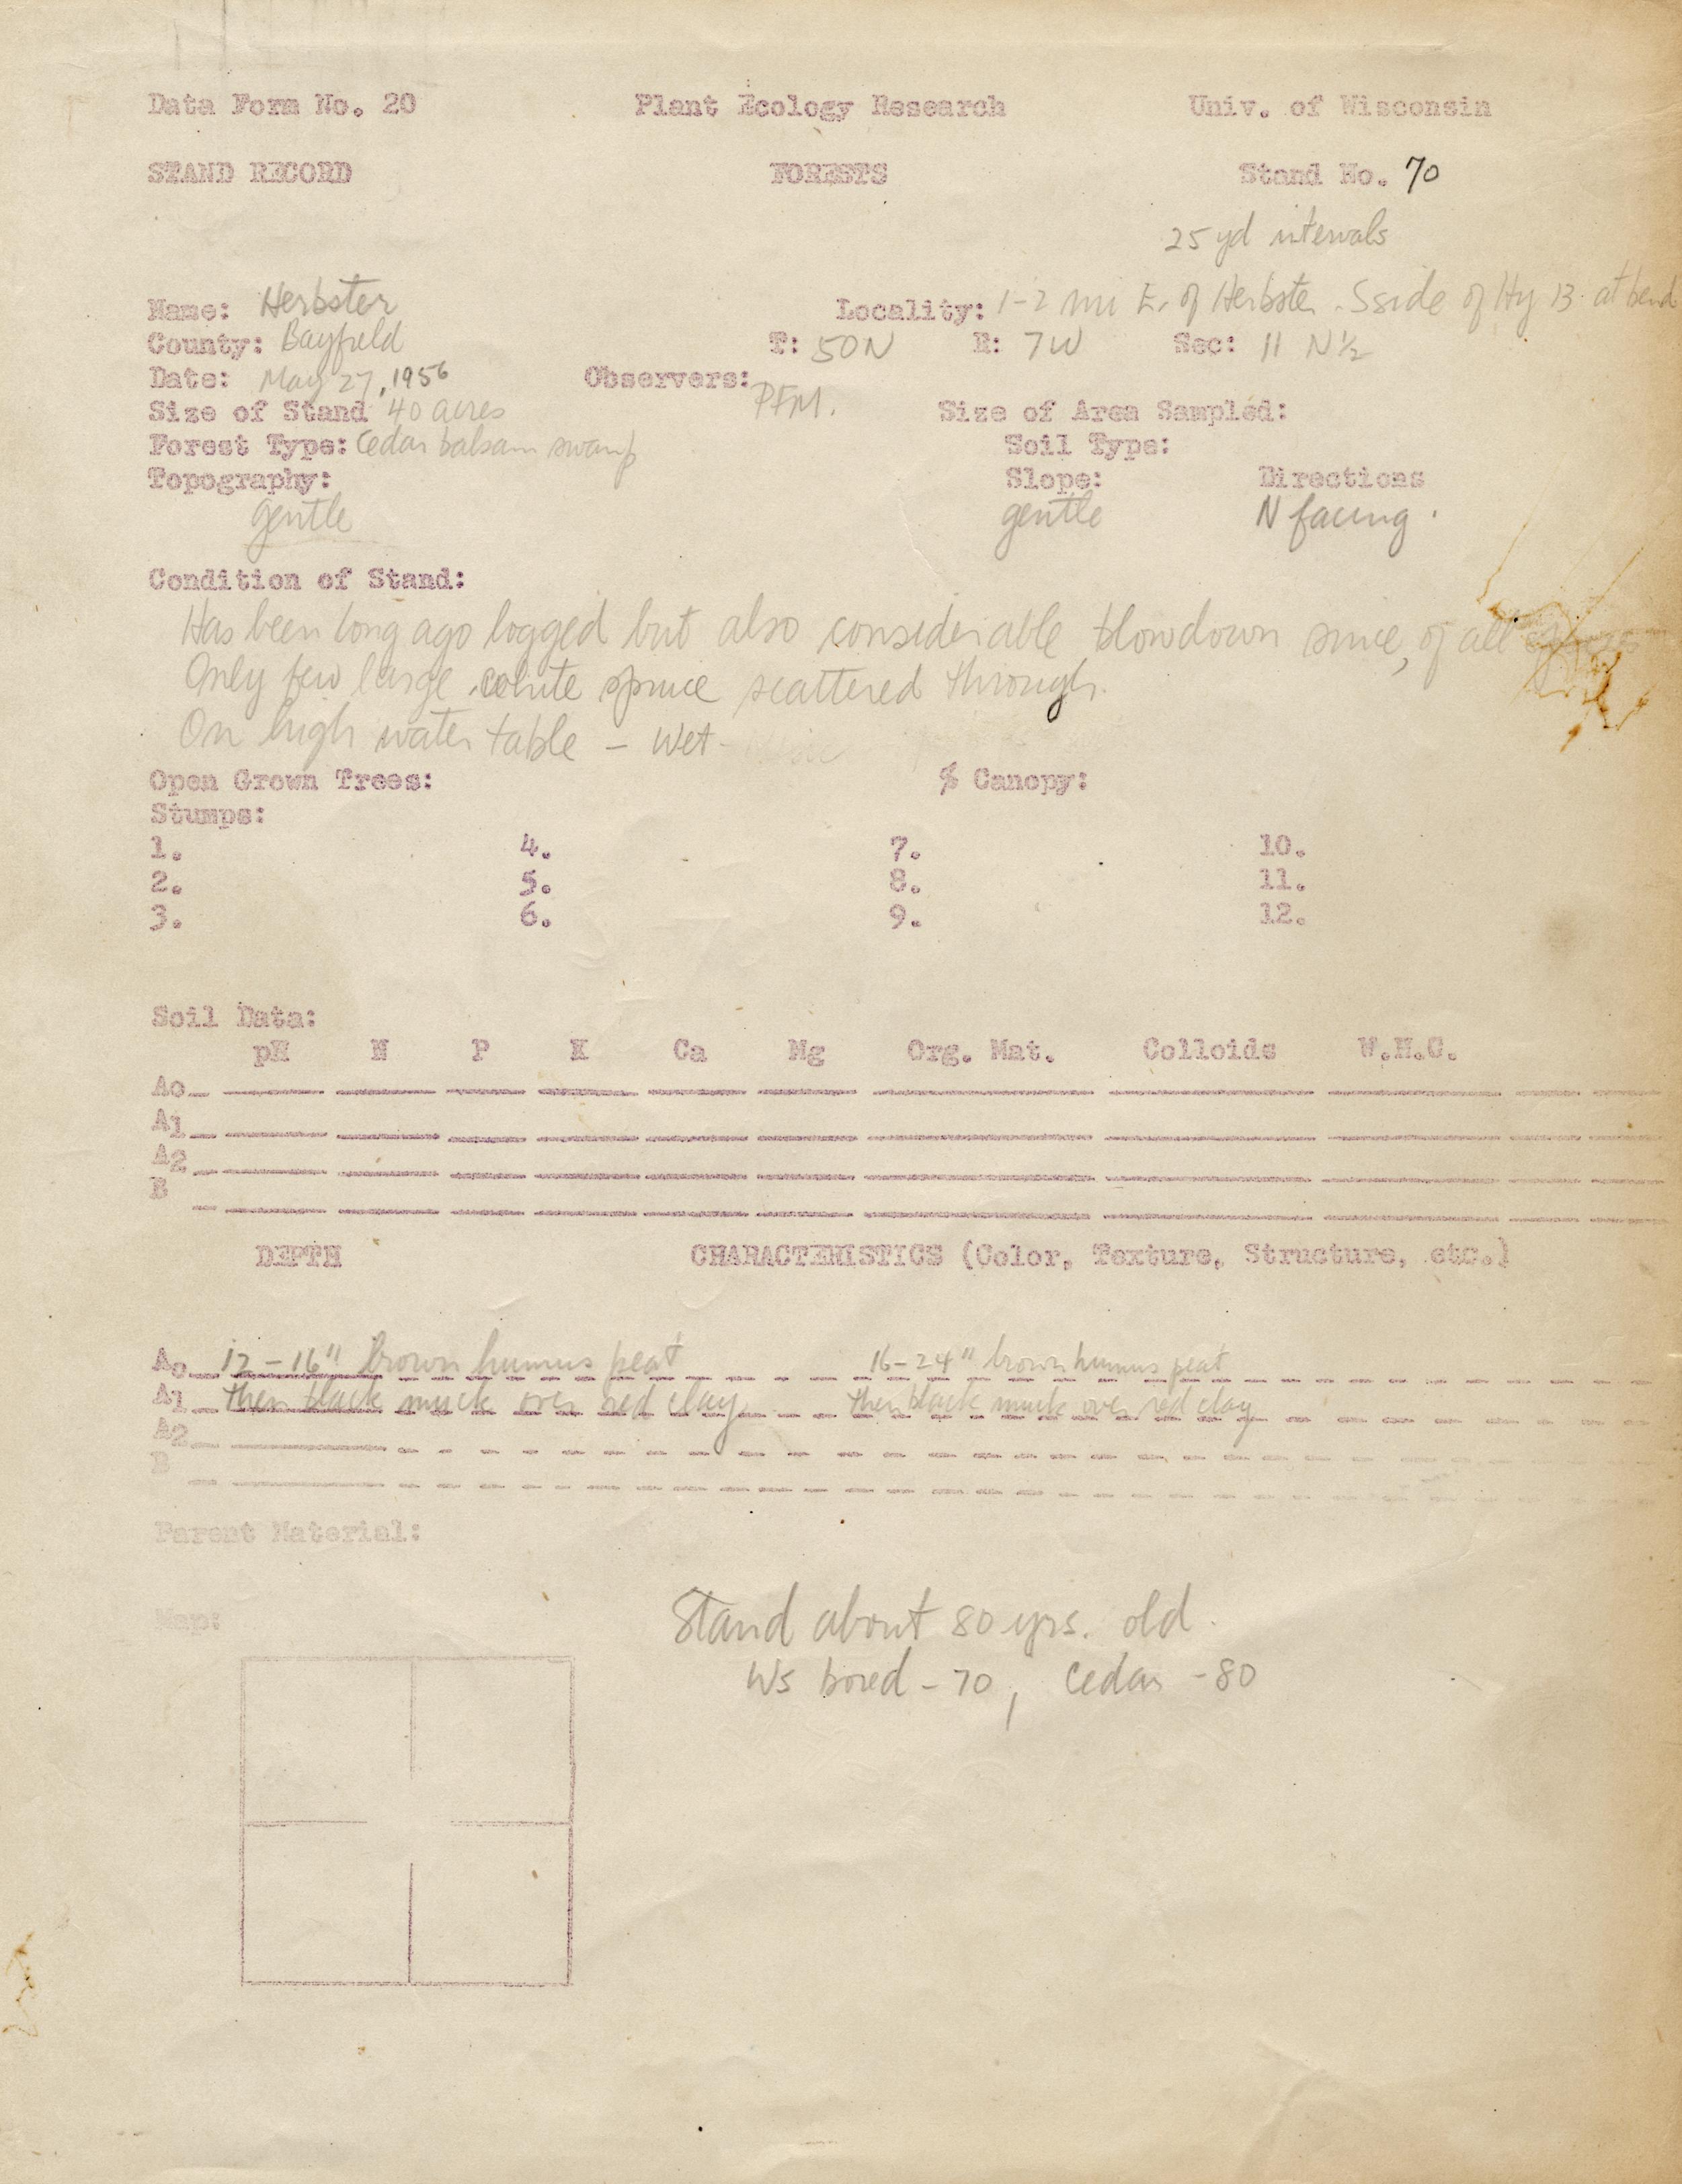 Data Form No. 20 Plant Ecology Research Univ. of Wisconsin
STAND RECORD FORESTS Stand No. 70
25 yd intervals
Name: Herbster Locality: 1-2 mi E. of Herbster. S side of Hy 13 at bend
County: Bayfield T: 50N R: 7W Sec: 11 N½
Date: May 27, 1956 Observers: PFM.
Size of Stand 40 acres Size of Area Sampled:
Forest Type: Cedar balsam swamp Soil Type:
Topography: Slope: Directions
gentle gentle N facing.
Condition of Stand:
Has been long ago logged but also considerable blowdown since, of all
Only few large white spruce scattered through.
On high water table - wet-
Open Grown Trees: % Canopy:
Stumps:
1. 4. 7. 10.
2. 5. 8. 11.
3. 6. 9. 12.
Soil Data:
pH N P K Ca Mg Org. Mat. Colloids W.H.C.
A0
A1
A2
B
DEPTH CHARACTERISTICS (Color, Texture, Structure, etc.)
A0 12-16" brown humus peat 16-24" brown humus peat
A1 then black muck over red clay then black muck over red clay
A2
B
Parent Material:
Map:
Stand about 80 yrs. old.
WS bored - 70, Cedar - 80